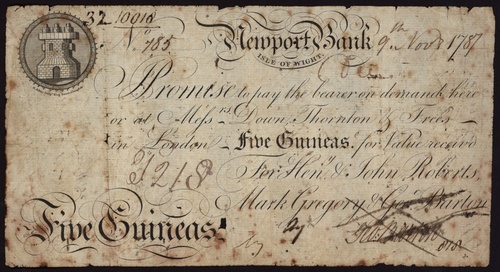 32 10916
No. 785 Newport Bank 9th Novr. 1787
ISLE OF WIGHT.
I Promise to pay the bearer on demand here
or at Messrs. Down, Thornton & Free
in London Five Guineas. for Value received
J 218 For Heny. & John Roberts,
Mark Gregory & Geo. Kharlon
Five Guineas.